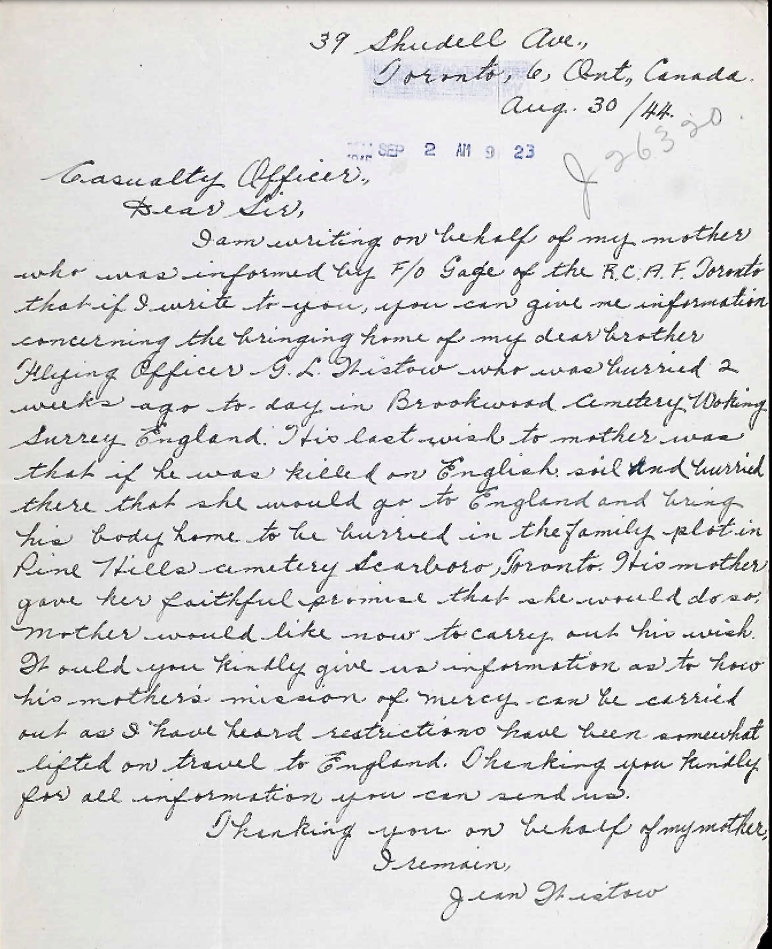 39 Shudell Ave.,
Toronto, 6, Ont., Canada.
Aug. 30/44.
SEP 2 AM 9 23
J26320
Casualty Officer.,
Dear Sir,
I am writing on behalf of my mother
who was informed by F/O Gage of the R.C.A.F. Toronto
that if I write to you, you can give me information
concerning the bringing home of my dear brother
Flying Officer G.L. Wistow who was burried 2
weeks ago to-day in Brookwood Cemetery Woking
Surrey England. His last wish to mother was
that if he was killed on English soil and burried
there that she would go to England and bring
his body home to be burried in the family plot in
Pine Hills cemetery Scarboro, Toronto. His mother
gave her faithful promise that she would do so.
Mother would like now to carry out his wish.
Would you kindly give us information as to how
his mother's mission of mercy can be carried
out as I have heard restrictions have been somewhat
lifted on travel to England. Thanking you kindly
for all information you can send us.
Thanking you on behalf of my mother,
I remain,
Jean Wistow